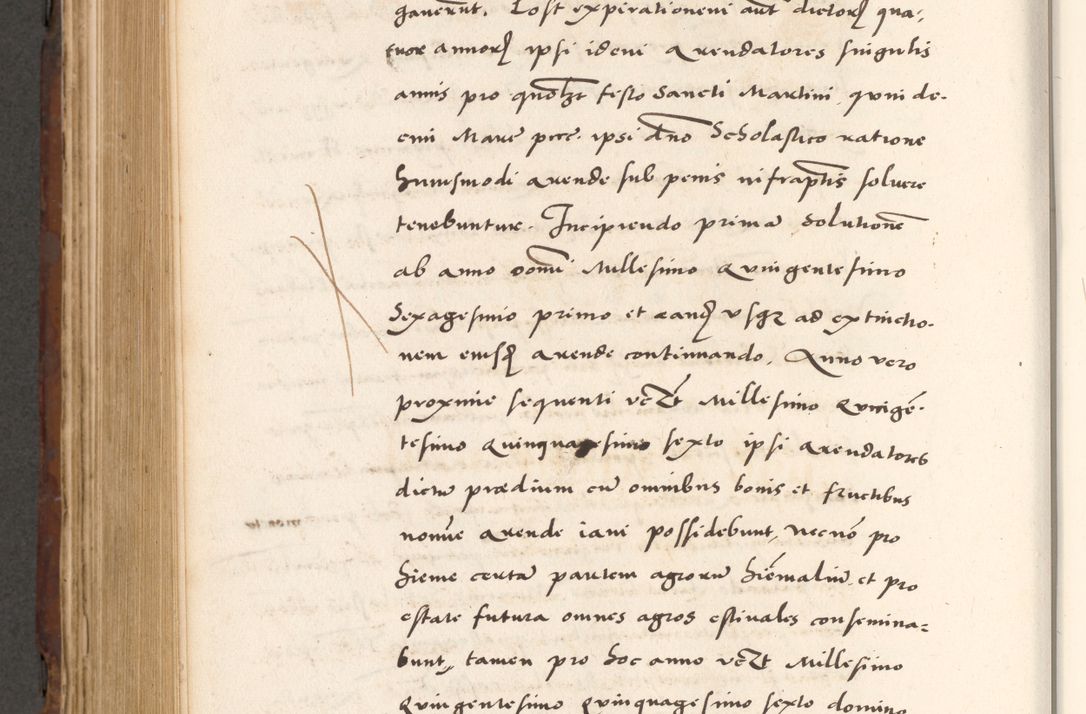 gaverunt. Post expirationem aut dictoꝝ qua-
tuor annoꝝ ipsi idem arendatores singulis
annis pro quolꝫt festo Sancti Martini quinde-
cim Marc pecc. ipsi dño Scholastico ratione
huiusmodi arende sub penis infraptis solvere
tenebuntur. Incipiendo primā solutionē
ab anno domi Millesimo Quingentesimo
Sexagesimo primo et eandꝫ usqꝫ ad extinctio-
nem eiusdꝫ arende continuando. Anno vero
proxime sequenti vcꝫt Millesimo Quingē-
tesimo Quinquagesimo sexto ipsi arendatores
dictū prædium cū omnibus bonis et fructibus
noīe arende iam possidebunt, necnō pro
hieme certā partem agrorum hiēmaliū et pro
estate futura omnes agros estivales consemina-
bunt, tamen pro hoc anno vcꝫt Millesimo
Quingentesimo Quinquagesimo sexto domino